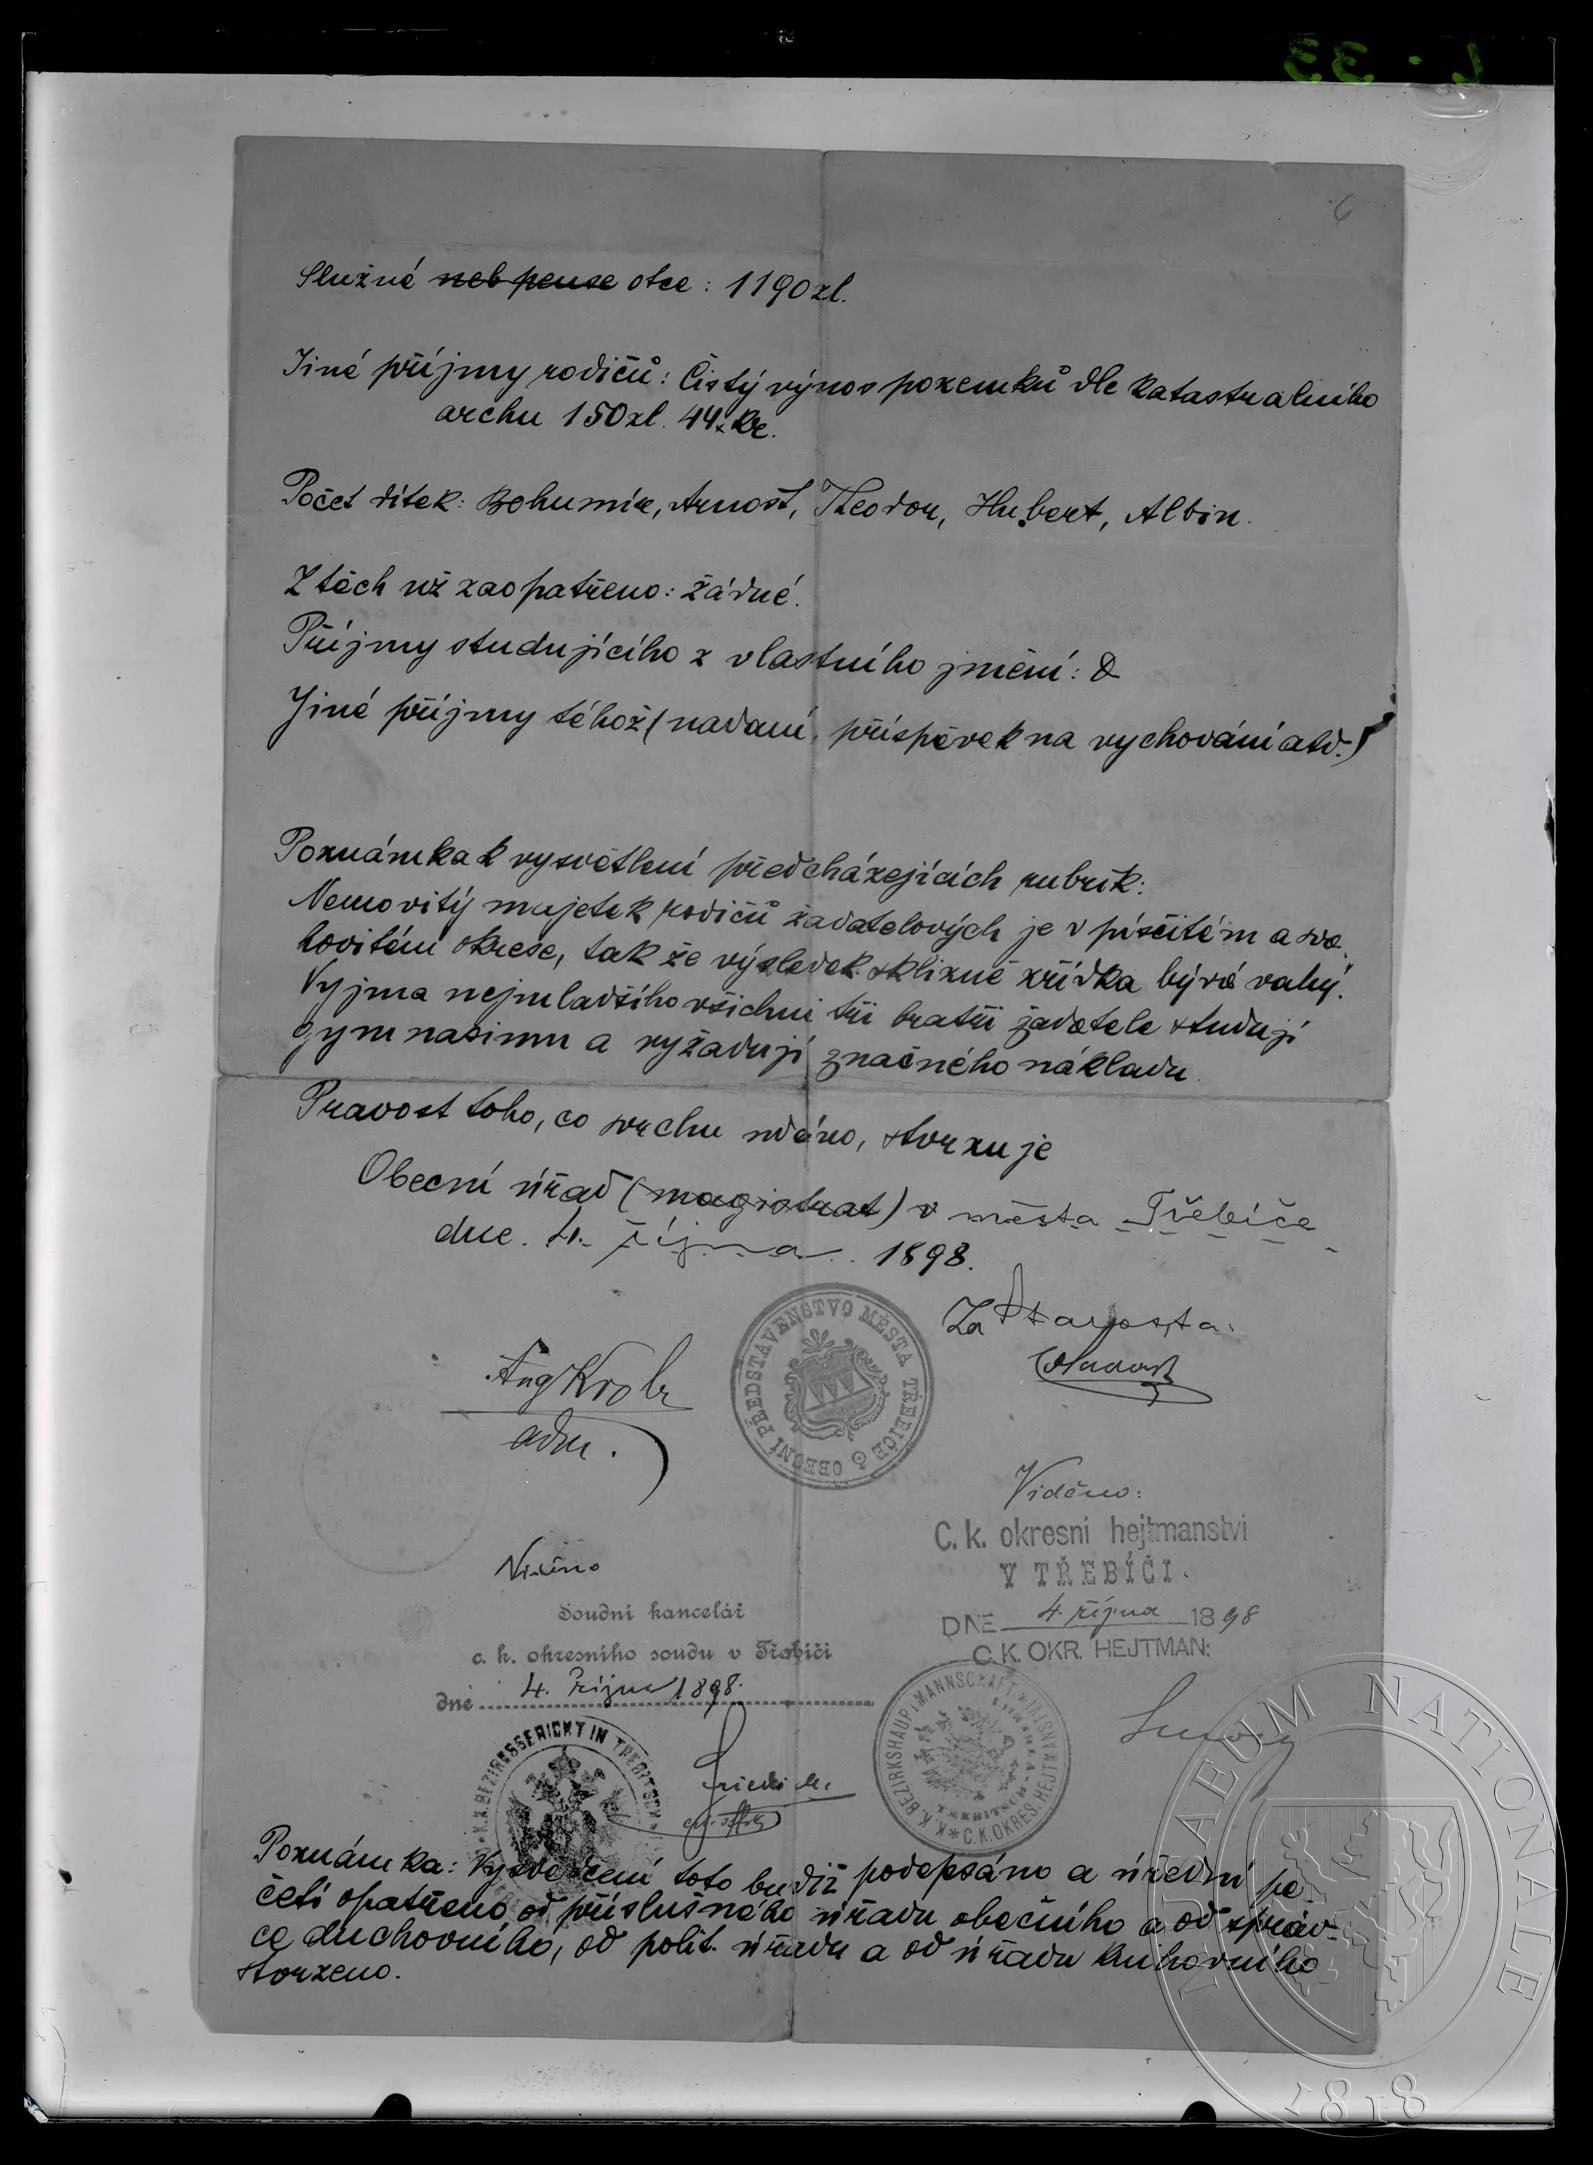 6
Služné neb pense otce: 1190 zl.
Jiné příjmy rodičů: Čistý výnos pozemků dle katastralního
archu 150 zl. 44 kr.
Počet dítek: Bohumír, Arnošt, Theodor, Hubert, Albin.
Z těch už zaopatřeno: žádné.
Příjmy studujícího z vlastního jmění:
Jiné příjmy téhož (nadaní, příspěvek na vychování atd.)
Poznámka k vysvětlení předcházejících rubrik:
Nemovitý majetek rodičů žadatelových je v písčitém a sva-
hovitém okrese, tak že výsledek sklizně zřídka bývá valný.
Vyjma nejmladšího všichni tři bratři žadatele studují
gymnasium a vyžadují značného nákladu.
Pravost toho, co svrchu udáno, stvrzuje
Obecní úřad (magistrat) v města Třebíče
dne 4. října 1898.
Za starosta:
OBECNÍ PŘEDSTAVENSTVO MĚSTA TŘEBÍČE
Aug Krob
adm.
Viděno:
C. k. okresní hejtmanství
V TŘEBÍČI.
DNE 4. října 1898
C. K. OKR. HEJTMAN:
Viděno
Soudní kancelář
c. k. okresního soudu v Třebíči
dne 4. října 1898.
K.K. BEZIRKSGERICHT IN TREBITSCH
K.K. BEZIRKSHAUPTMANNSCHAFT TREBITSCH * C.K. OKRES. HEJTMANSTVÍ
Poznámka: Vysvědčení toto budiž podepsáno a úřední pe-
četí opatřeno od příslušného úřadu obecního a od správ-
ce duchovního, od polit. úřadu a od úřadu knihovního
stvrzeno.
MUSAEUM NATIONALE
1818